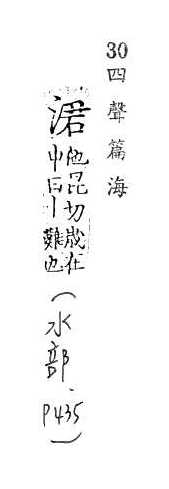 30 四聲篇海
涒他昆切歲在
申曰丨難也
（水部、P435）